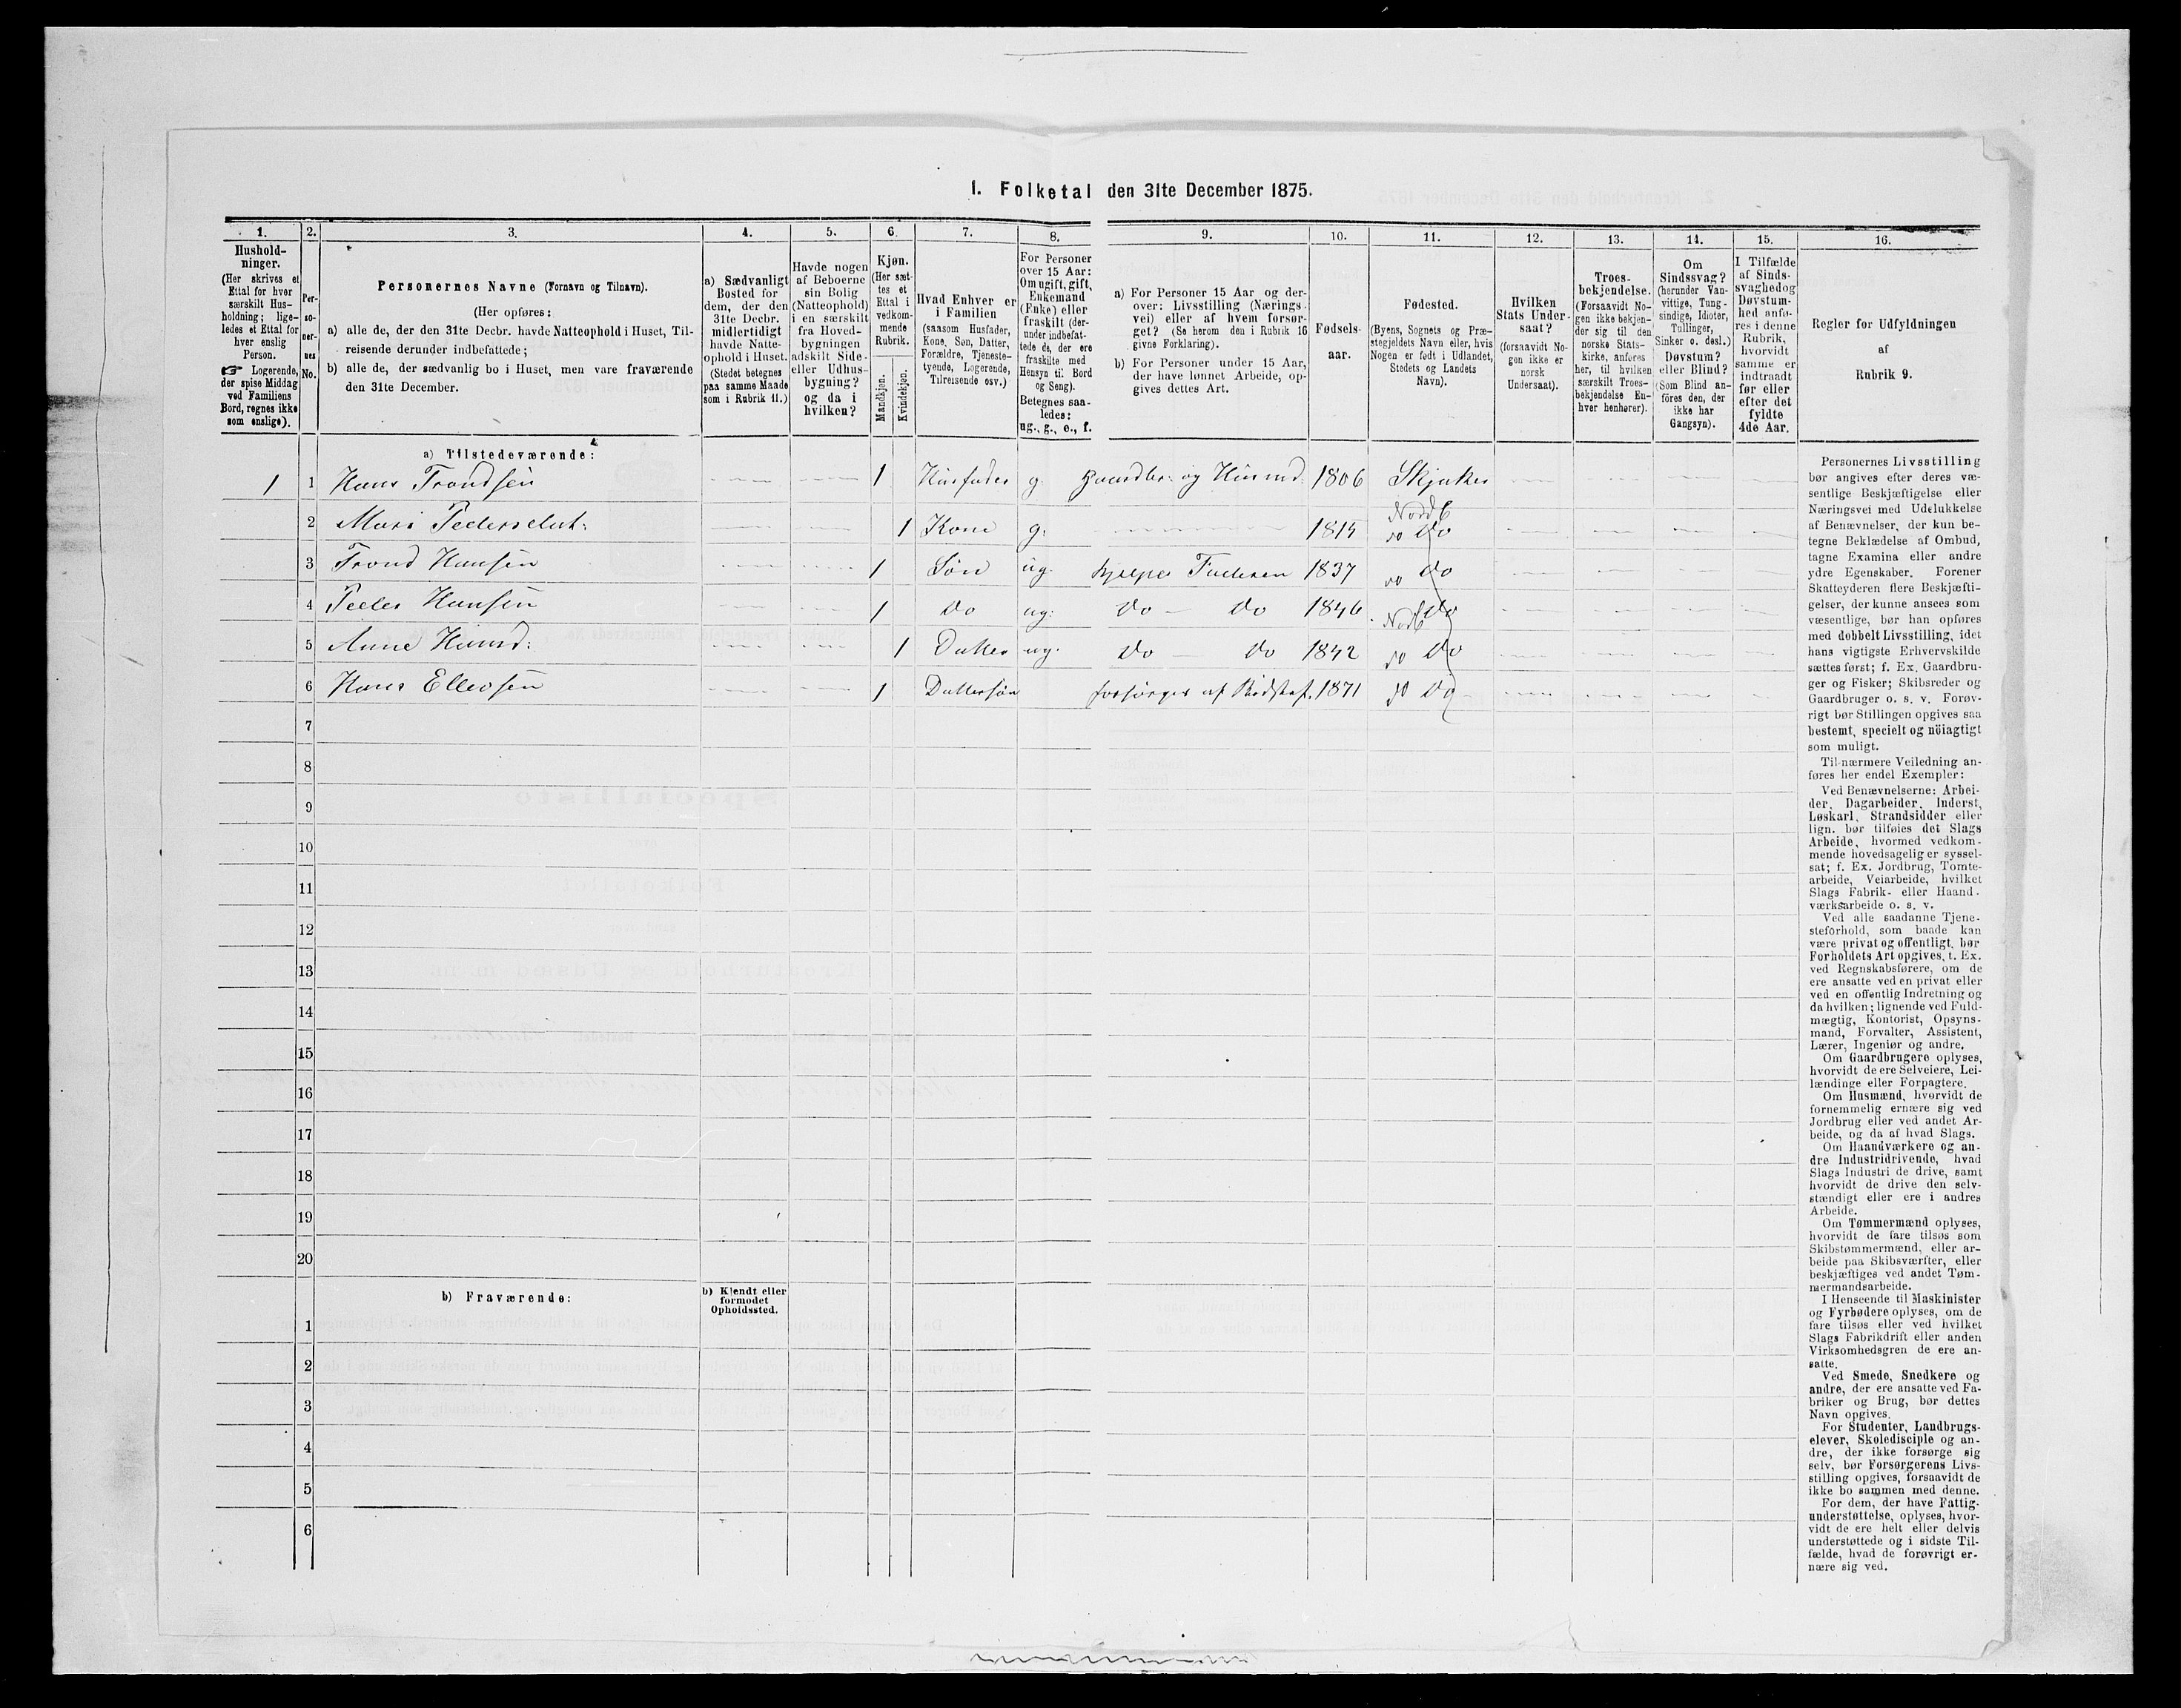 1. Folketal den 31te December 1875.
1. 2. 3. 4. 5. 6. 7. 8. 9. 10. 11. 12. 13. 14. 15. 16.
Hushold-
ninger.
(Her skrives et
Ettal for hver
særskilt Hus-
holdning; lige-
ledes et Ettal for
hver enslig
Person.
☞ Logerende,
der spise Middag
ved Familiens
Bord, regnes ikke
som enslige).
Per-
so-
ner-
nes
No.
Personernes Navne (Fornavn og Tilnavn).
(Her opføres:
a) alle de, der den 31te Decbr. havde Natteophold i Huset, Til-
reisende derunder indbefattede;
b) alle de, der sædvanlig bo i Huset, men vare fraværende
den 31te December.
a) Sædvanligt
Bosted for
dem, der den
31te Decbr.
midlertidigt
havde Natte-
ophold i Huset.
(Stedet betegnes
paa samme Maade
som i Rubrik 11.)
Havde nogen
af Beboerne
sin Bolig
(Natteophold)
i en særskilt
fra Hoved-
bygningen
adskilt Side-
eller Udhus-
bygning?
og da i
hvilken?
Kjøn.
(Her sæt-
tes et
Ettal i
vedkom-
mende
Rubrik.
Mandkjøn.
Kvindekjøn.
Hvad Enhver er
i Familien
(saasom Husfader,
Kone, Søn, Datter,
Forældre, Tjeneste-
tyende, Logerende,
Tilreisende osv.)
For Personer
over 15 Aar:
Om ugift, gift,
Enkemand
(Enke) eller
fraskilt (der-
under indbefat-
tede de, der ere
fraskilte med
Hensyn til Bord
og Seng).
Betegnes saa-
ledes:
ug., g., e., f.
a) For Personer 15 Aar og der-
over: Livsstilling (Nærings-
vei) eller af hvem forsør-
get? (Se herom den i Rubrik 16
givne Forklaring).
b) For Personer under 15 Aar,
der have lønnet Arbeide, op-
gives dettes Art.
Fødsels-
aar.
Fødested.
(Byens, Sognets og Præ-
stegjeldets Navn eller, hvis
Nogen er født i Udlandet,
Stedets og Landets
Navn).
Hvilken
Stats Under-
saat?
(forsaavidt No-
gen ikke er
norsk
Undersaat).
Troes-
bekjendelse.
(Forsaavidt No-
gen ikke bekjen-
der sig til den
norske Stats-
kirke, anføres
her, til hvilken
særskilt Troes-
bekjendelse En-
hver henhører).
Om
Sindssvag?
(herunder Van-
vittige, Tung-
sindige, Idioter,
Tullinger,
Sinker o. desl.)
Døvstum?
eller Blind?
(Som Blind an-
føres den, der
ikke har
Gangsyn).
I Tilfælde
af Sinds-
svaghed og
Døvstum-
hed anfø-
res i denne
Rubrik,
hvorvidt
samme er
indtraadt
før eller
efter det
fyldte
4de Aar.
Regler for Udfyldningen
af
Rubrik 9.
a) Tilstedeværende:
1 1 Hans Trondsen 1 Husfader g. Gaardbr. og Husmd. 1806 Skjaker
2 Mari Pedersdat: 1 Kone g. 1814 do do
3 Trond Hansen 1 Søn ug. hjelper Faderen 1837 do do
4 Peder Hansen 1 do ug: do do 1846 do
5 Anne Hansd: 1 Datter ug. do do 1842 do do
6 Hans Ellevsen 1 Dattersøn forsørges af 1871 do do
7
8
9
10
11
12
13
14
15
16
17
18
19
20
b) Fraværende:
b) Kjendt eller
formodet
Opholdssted.
1
2
3
4
5
6
Personernes Livsstilling
bør angives efter deres væ-
sentlige Beskjæftigelse eller
Næringsvei med Udelukkelse
af Benævnelser, der kun be-
tegne Beklædelse af Ombud,
tagne Examina eller andre
ydre Egenskaber. Forener
Skatteyderen flere Beskjæfti-
gelser, der kunne ansees som
væsentlige, bør han opføres
med dobbelt Livsstilling, idet
hans vigtigste Erhvervskilde
sættes først; f. Ex. Gaardbru-
ger og Fisker; Skibsreder og
Gaardbruger o. s. v. Forøv-
rigt bør Stillingen opgives saa
bestemt, specielt og nøiagtigt
som muligt.
Til nærmere Veiledning an-
føres her endel Exempler:
Ved Benævnelserne: Arbei-
der, Dagarbeider, Inderst,
Løskarl, Strandsidder eller
lign. bør tilføies det Slags
Arbeide, hvormed vedkom-
mende hovedsagelig er syssel-
sat; f. Ex. Jordbrug, Tomte-
arbeide, Veiarbeide, hvilket
Slags Fabrik- eller Haand-
værksarbeide o. s. v.
Ved alle saadanne Tjene-
steforhold, som baade kan
være privat og offentligt, bør
Forholdets Art opgives, t. Ex.
ved Regnskabsførere, om de
ere ansatte ved en privat eller
ved en offentlig Indretning og
da hvilken; lignende ved Fuld-
mægtig, Kontorist, Opsyns-
mand, Forvalter, Assistent,
Lærer, Ingeniør og andre.
Om Gaardbrugere oplyses,
hvorvidt de ere Selveiere, Lei-
lændinge eller Forpagtere.
Om Husmænd, hvorvidt de
fornemmelig ernære sig ved
Jordbrug eller ved andet Ar-
beide, og da af hvad Slags.
Om Haandværkere og an-
dre Industridrivende, hvad
Slags Industri de drive, samt
hvorvidt de drive den selv-
stændigt eller ere i andres
Arbeide.
Om Tømmermænd oplyses,
hvorvidt de fare tilsøs som
Skibstømmermænd, eller ar-
beide paa Skibsværfter, eller
beskjæftiges ved andet Tøm-
mermandsarbeide.
I Henseende til Maskinister
og Fyrbødere oplyses, om de
fare tilsøs eller ved hvilket
Slags Fabrikdrift eller anden
Virksomhedsgren de ere an-
satte.
Ved Smede, Snedkere og
andre, der ere ansatte ved Fa-
briker og Brug, bør dettes
Navn opgives.
For Studenter, Landbrugs-
elever, Skoledisciple og an-
dre, der ikke forsørge sig
selv, bør Forsørgerens Livs-
stilling opgives, forsaavidt de
ikke bo sammen med denne.
For dem, der have Fattig-
understøttelse, oplyses, hvor-
vidt de ere helt eller delvis
understøttede og i sidste Til-
fælde, hvad de forøvrigt er-
nære sig ved.